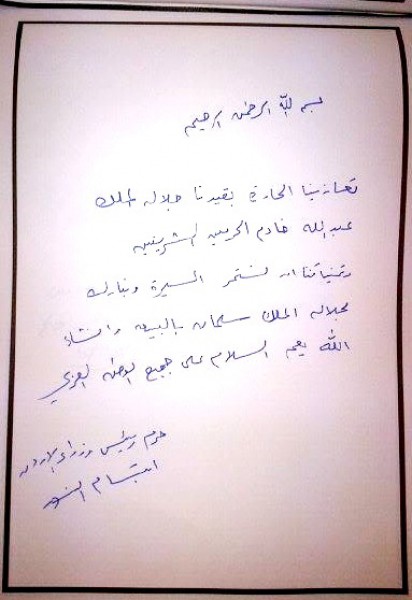 بسم الله الرحمن الرحيم
تعازينا الحارة بفقيدنا جلالة الملك
عبدالله خادم الحرمين الشريفين
وتمنياتنا ان تستمر المسيرة ونبارك
لجلالة الملك سلمان بالبيعه وانشاء
الله يعم السلام على جميع الوطن العربي
حرم رئيس وزراء الاردن
ابتسام النسور